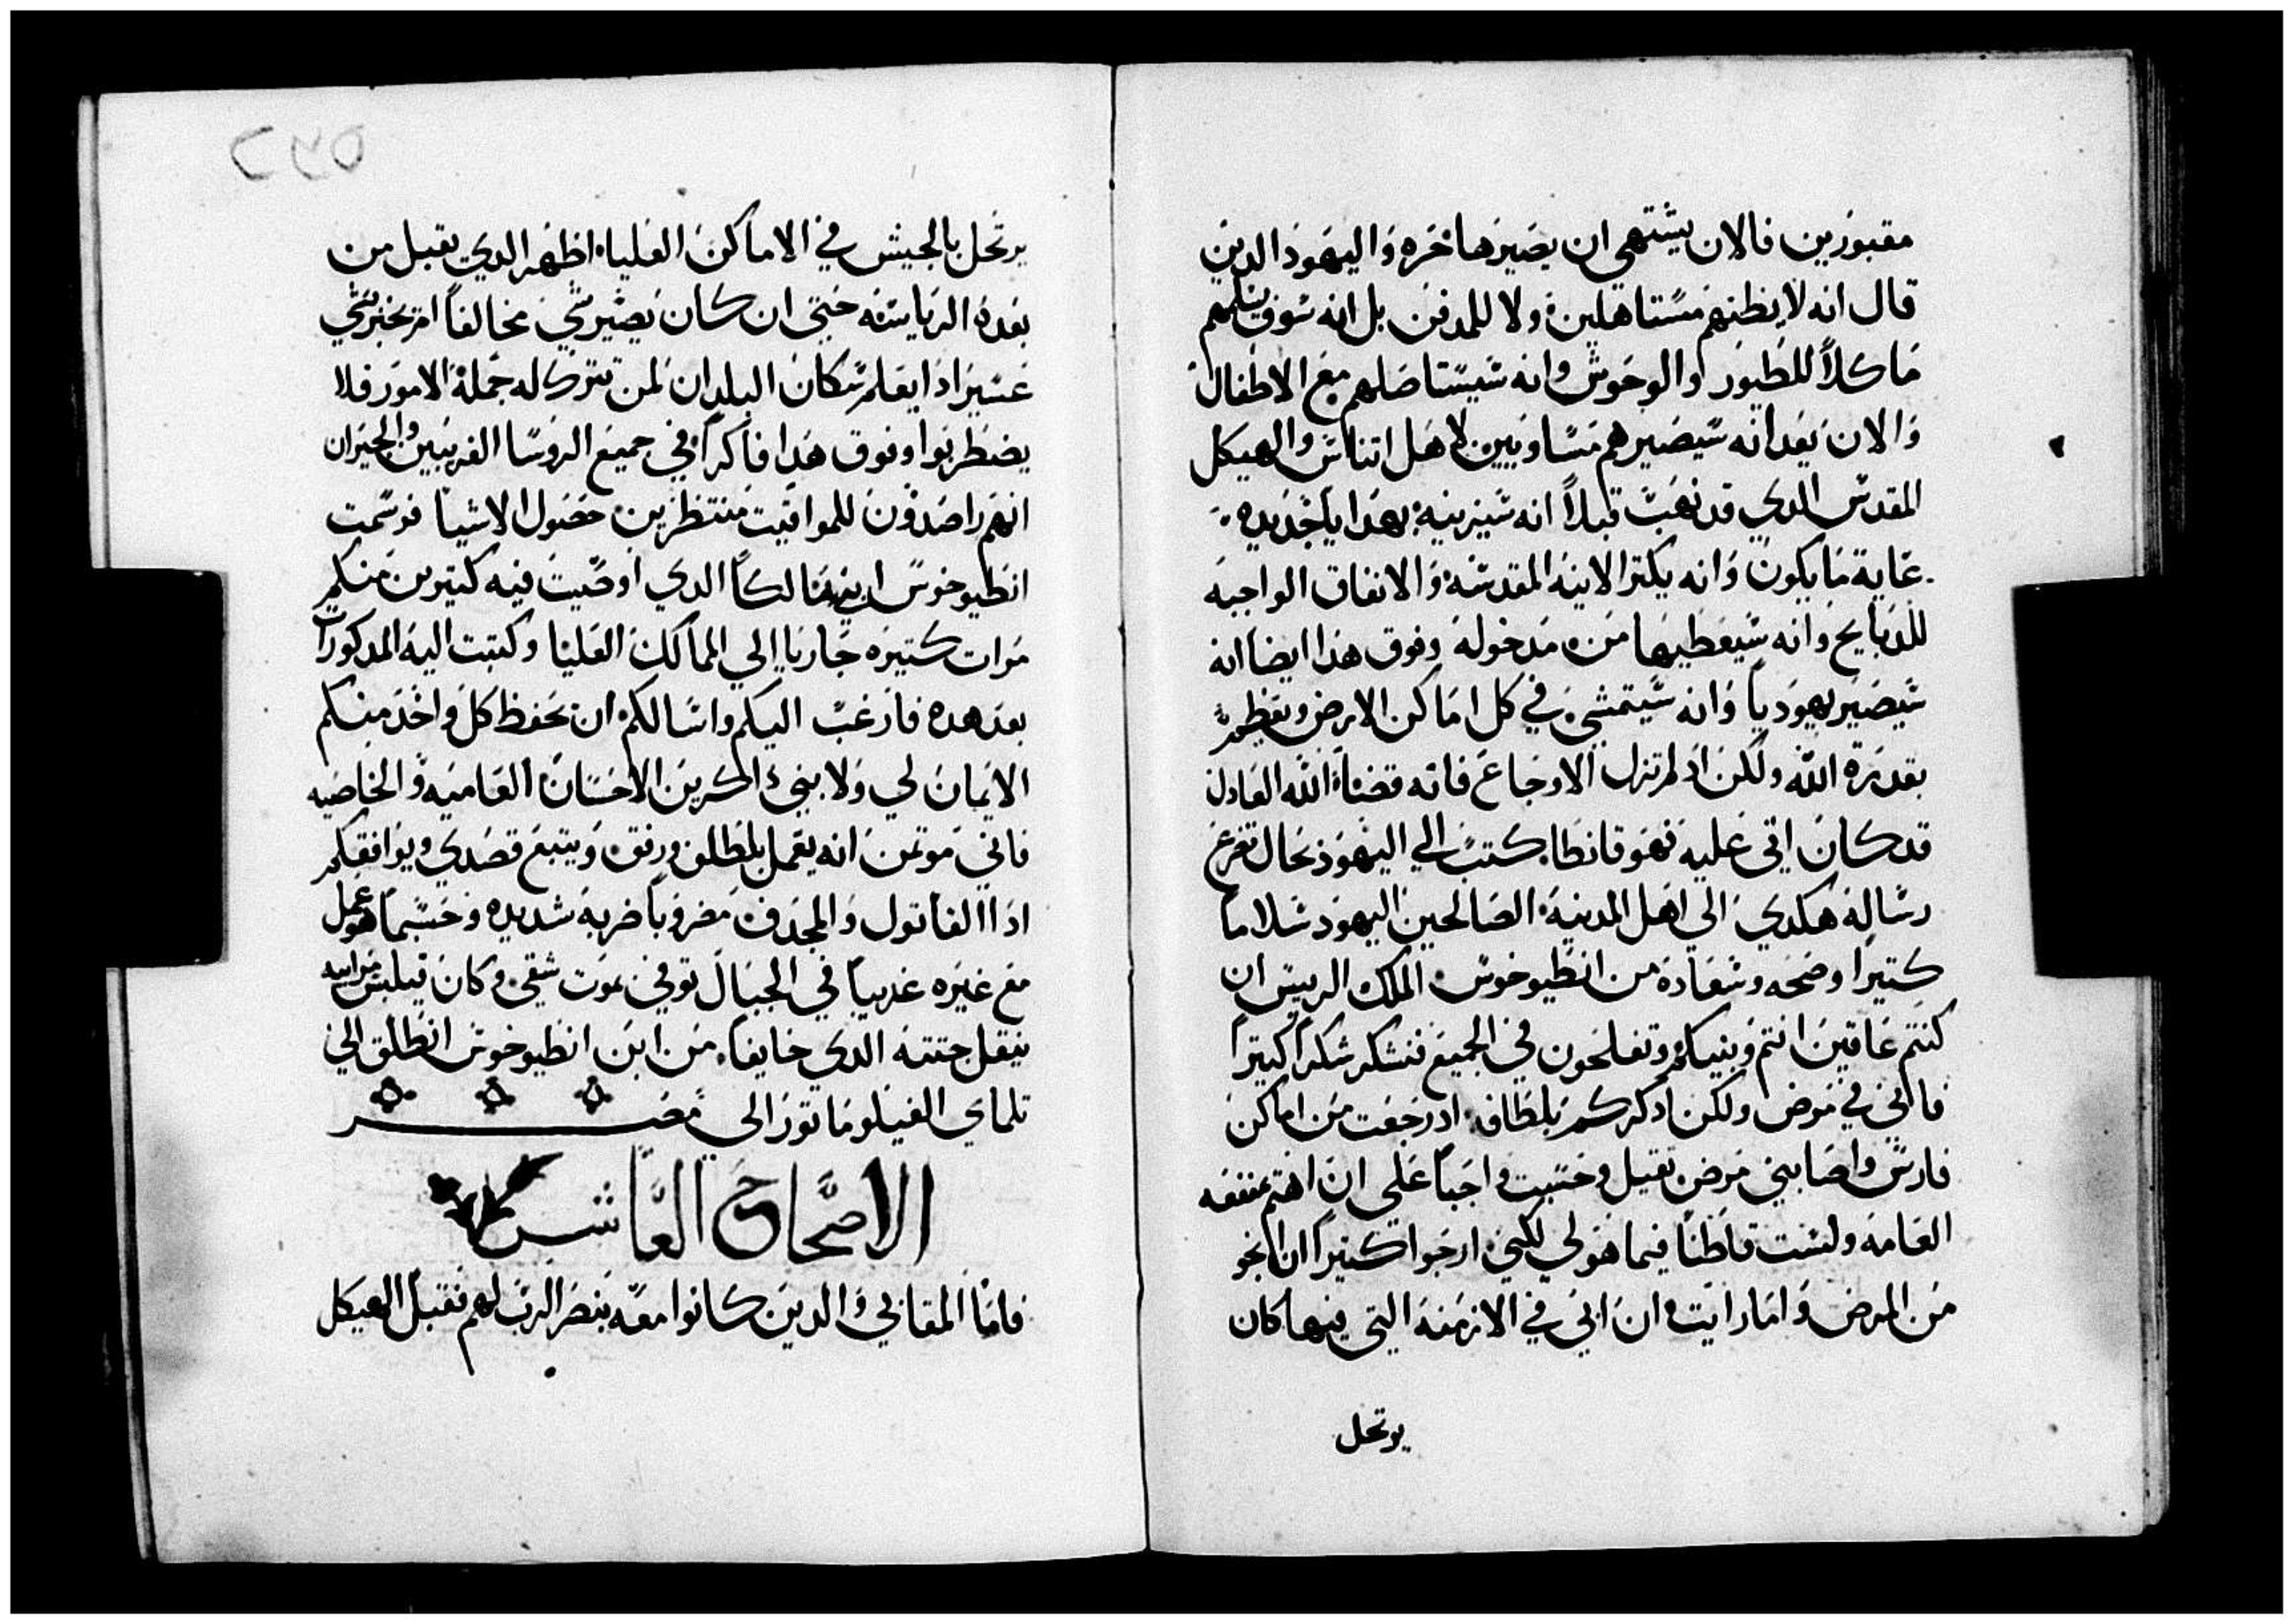 مقبورين فالان يشتهي ان يصيرها حره واليهود الدين
قال انه لا يظنهم مستاهلين ولا للمدفن بل انه سوف يسلمهم
ماكلاً للطيور والوحوش وانه سيستاصلهم مع الاطفال
والان يعد انه سيصيرهم مساويين لاهل اتناس والهيكل
المقدس الدي قد نهب قبلاً انه سيزينه بهدايا جديده
غاية ما يكون وانه يكتر الانيه المقدسه والانفاق الواجبه
للدبايح وانه سيعطيها من مدخوله وفوق هدا ايضا انه
سيصير يهودياً وانه سيتمشي في كل اماكن الارض ويعظهم
بقدرة الله ولكن اد لم تزل الاوجاع فانه قضاء الله العادل
قد كان اتي عليه فهو قانطا كتب الي اليهود بحال تضرع
رسالة هكدي الي اهل المدينة الصالحين اليهود سلاما
كتيرا وصحه وسعادة من انطيوخوس الملك الريس ان
كنتم عافين انتم وبنيكم وتفلحون في الجميع فنشكر شكراً كتيراً
فانني في مرض ولكن ادكركم بلطافه اد رجعت من اماكن
فارس واصابني مرض تقيل وحسبت واجباً علي ان اهتم بمنفعه
العامه ولست قانطاً فيما هو لي لكني ارجوا كتيراً ان انجو
من المرض واما رايت ان ابي في الازمنه التي فيها كان
يرتحل
يرتحل بالجيش في الاماكن العليا اظهر الدي يقبل من
بعده الرياسه حتي ان كان يصير شي مخالفاً ام يخبر بشي
عسير ادا يعلم سكان البلدان لمن تترك له جملة الامور فلا
يضطربوا وفوق هدا فاكراً في جميع الروسا القريبين والجيران
انهم راصدون للمواقيت منتظرين حصول الاشيا فرسمت
انطيوخوس ابني مالكاً الدي اوصيت فيه كتيرين منكم
مرات كتيره جاريا الي الممالك العليا وكتبت اليه المدكورات
بعد هده فارغب اليكم واسالكم ان يحفظ كل واحد منكم
الايمان لي ولابني داكرين الاحسان العاميه والخاصيه
فاني موتمن انه يعمل بلطف ورفق ويتبع قصدي ويوافقكم
ادا القاتول والمجدف مضروباً ضربة شديده وحسبما هو عمل
مع غيره غريباً في الجبال توفي بموت شقي وكان فيلبس مرابيه
ينقل جتته الدي خايفاً من ابن انطيوخوس انطلق الي
تلماي الفيلوماتور الي مصر
الاصحاح العاشر
فاما المقابي والدين كانوا معه بنصر الرب لهم فقبل الهيكل